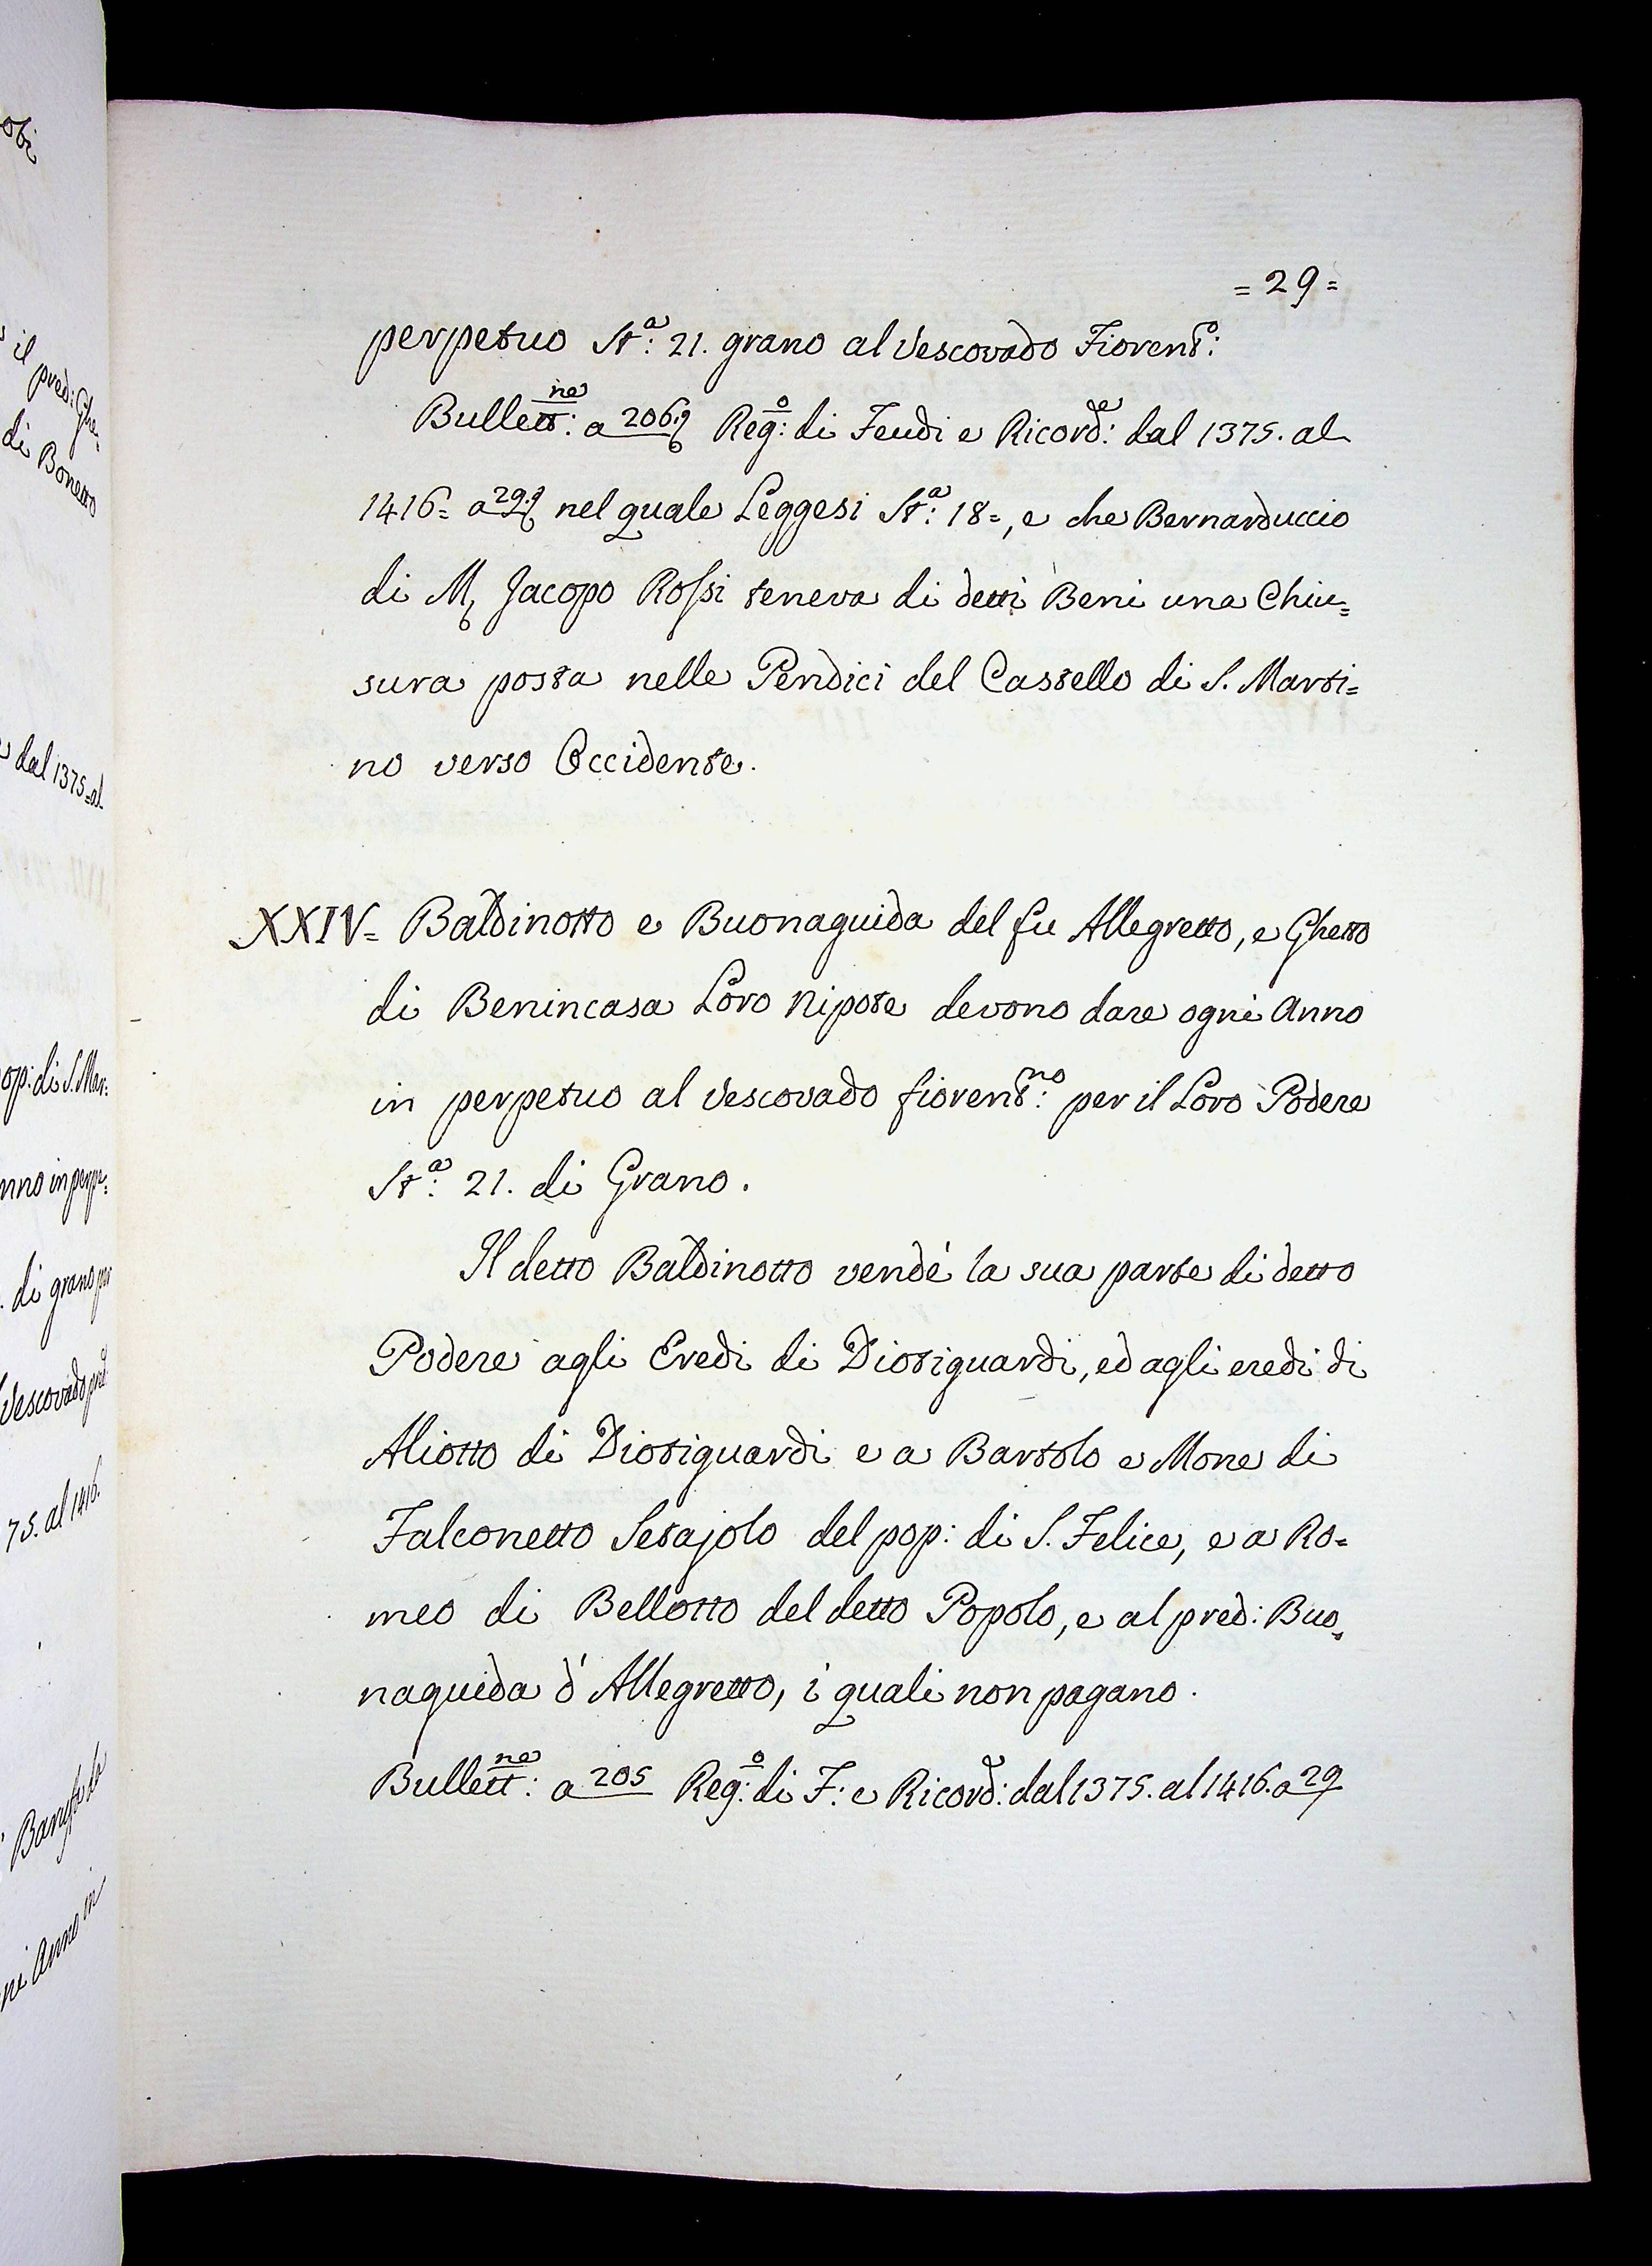 obi
il pred: Ghe-
di Bonetto
dal 1375=al
pop: di S. Mar:
nno in perpe:
di grano per
Vescovado pred
75. al 1416.
ni Anno in
= 29 =
perpetuo St.a: 21. grano al Vescovado Fiorent.o:
Bullett.ne: a 206. Reg.o: di Feudi e Ricord.e: dal 1375. al
1416= a 29. nel quale Leggesi St.a: 18=, e che Bernarduccio
di M. Jacopo Rossi teneva di detti Beni una Chiu=
sura posta nelle Pendici del Castello di S. Marti=
no verso Occidente.
XXIV= Baldinotto e Buonaguida del fu Allegretto, e Ghetto
di Benincasa Loro Nipote devono dare ogni Anno
in perpetuo al Vescovado fiorent.no: per il Loro Podere
St.a: 21. di Grano.
Il detto Baldinotto vendè la sua parte di detto
Podere agli Eredi di Diotiguardi, ed agli eredi di
Aliotto di Diotiguardi e a Bartolo e Mone di
Falconetto Setajolo del pop: di S. Felice, e a Ro=
meo di Bellotto del detto Popolo, e al pred: Buo=
naguida d' Allegretto, i quali non pagano.
Bullett.ne: a 205 Reg.o: di F: e Ricord.e: dal 1375. al 1416. a 29